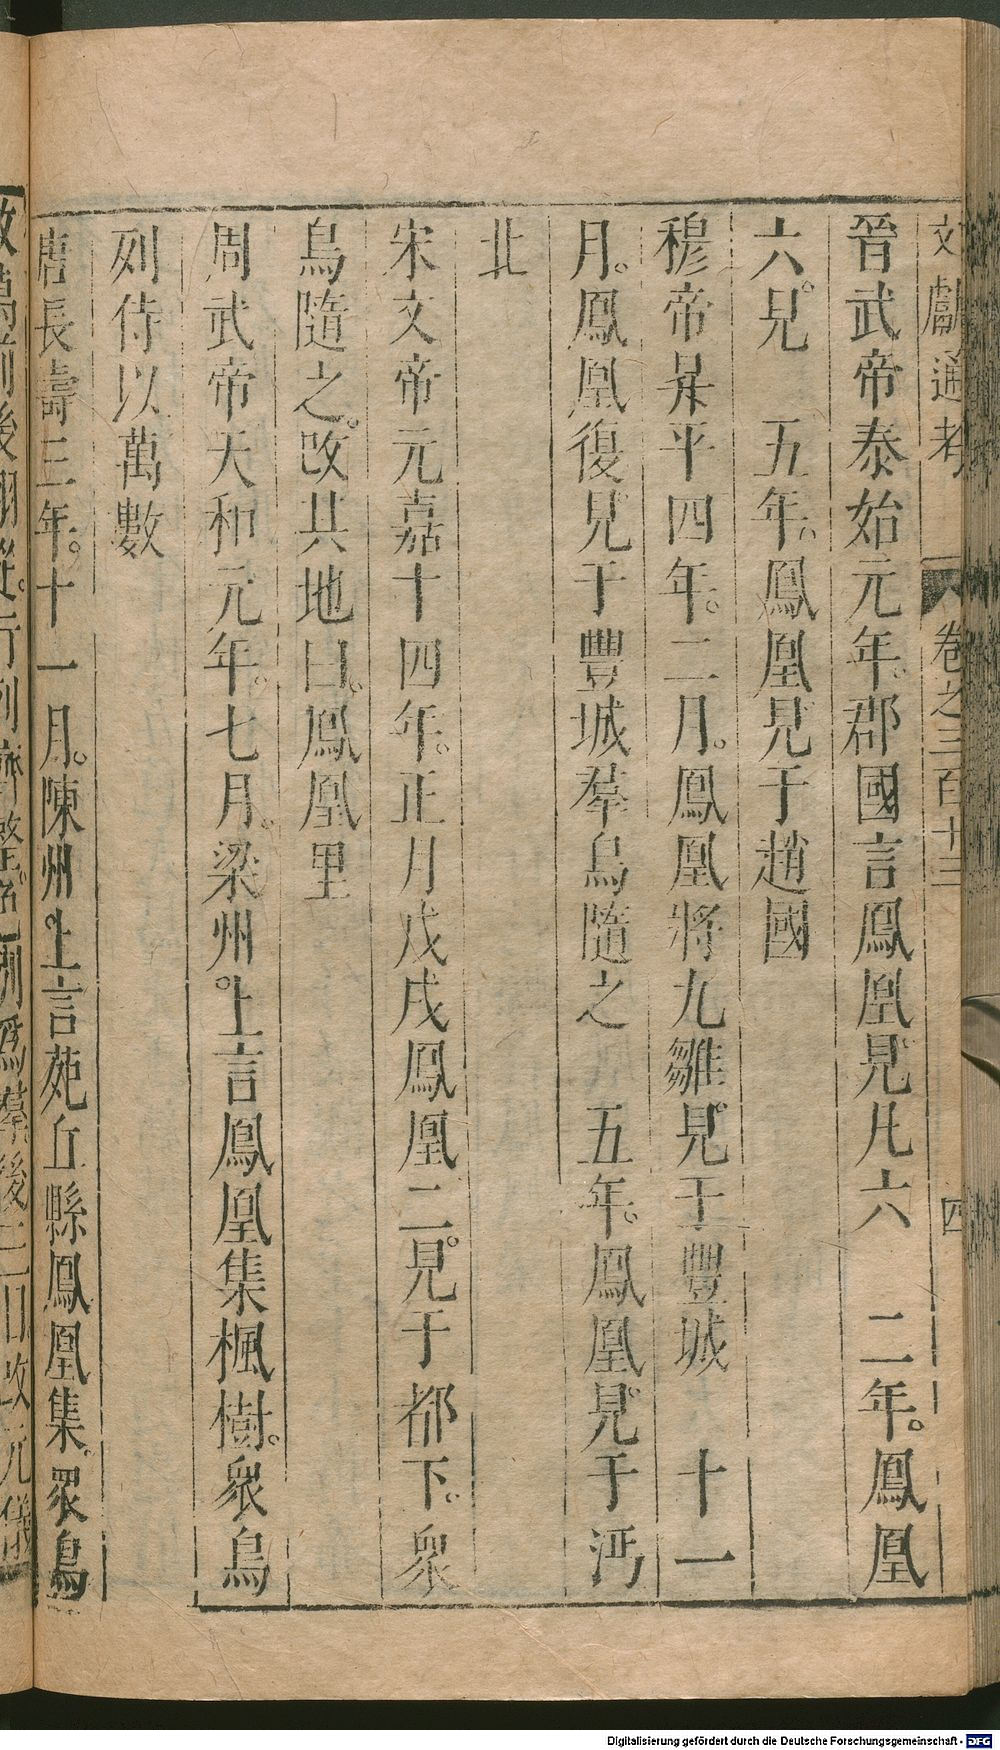 文獻通考 卷之三百十三 四
晉武帝泰始元年。郡國言鳳凰見凡六 二年。鳳凰
六。見 五年。鳳凰見于趙國
穆帝昇平四年。二月。鳳凰將九雛。見于豐城 十一
月。鳳凰復見于豐城羣鳥隨之 五年。鳳凰見于沔
北
宋文帝元嘉十四年。正月戊戌鳳凰二。見于都下。衆
鳥隨之。改其地曰。鳳凰里
周武帝天和元年。七月。梁州。上言鳳凰集楓樹。衆鳥
列侍以萬數
唐長壽三年。十一月。陳州。上言苑丘縣鳳凰集。衆鳥
後 行列齊整 別爲羣後二日改元儀
Digitalisierung gefördert durch die Deutsche Forschungsgemeinschaft - DFG